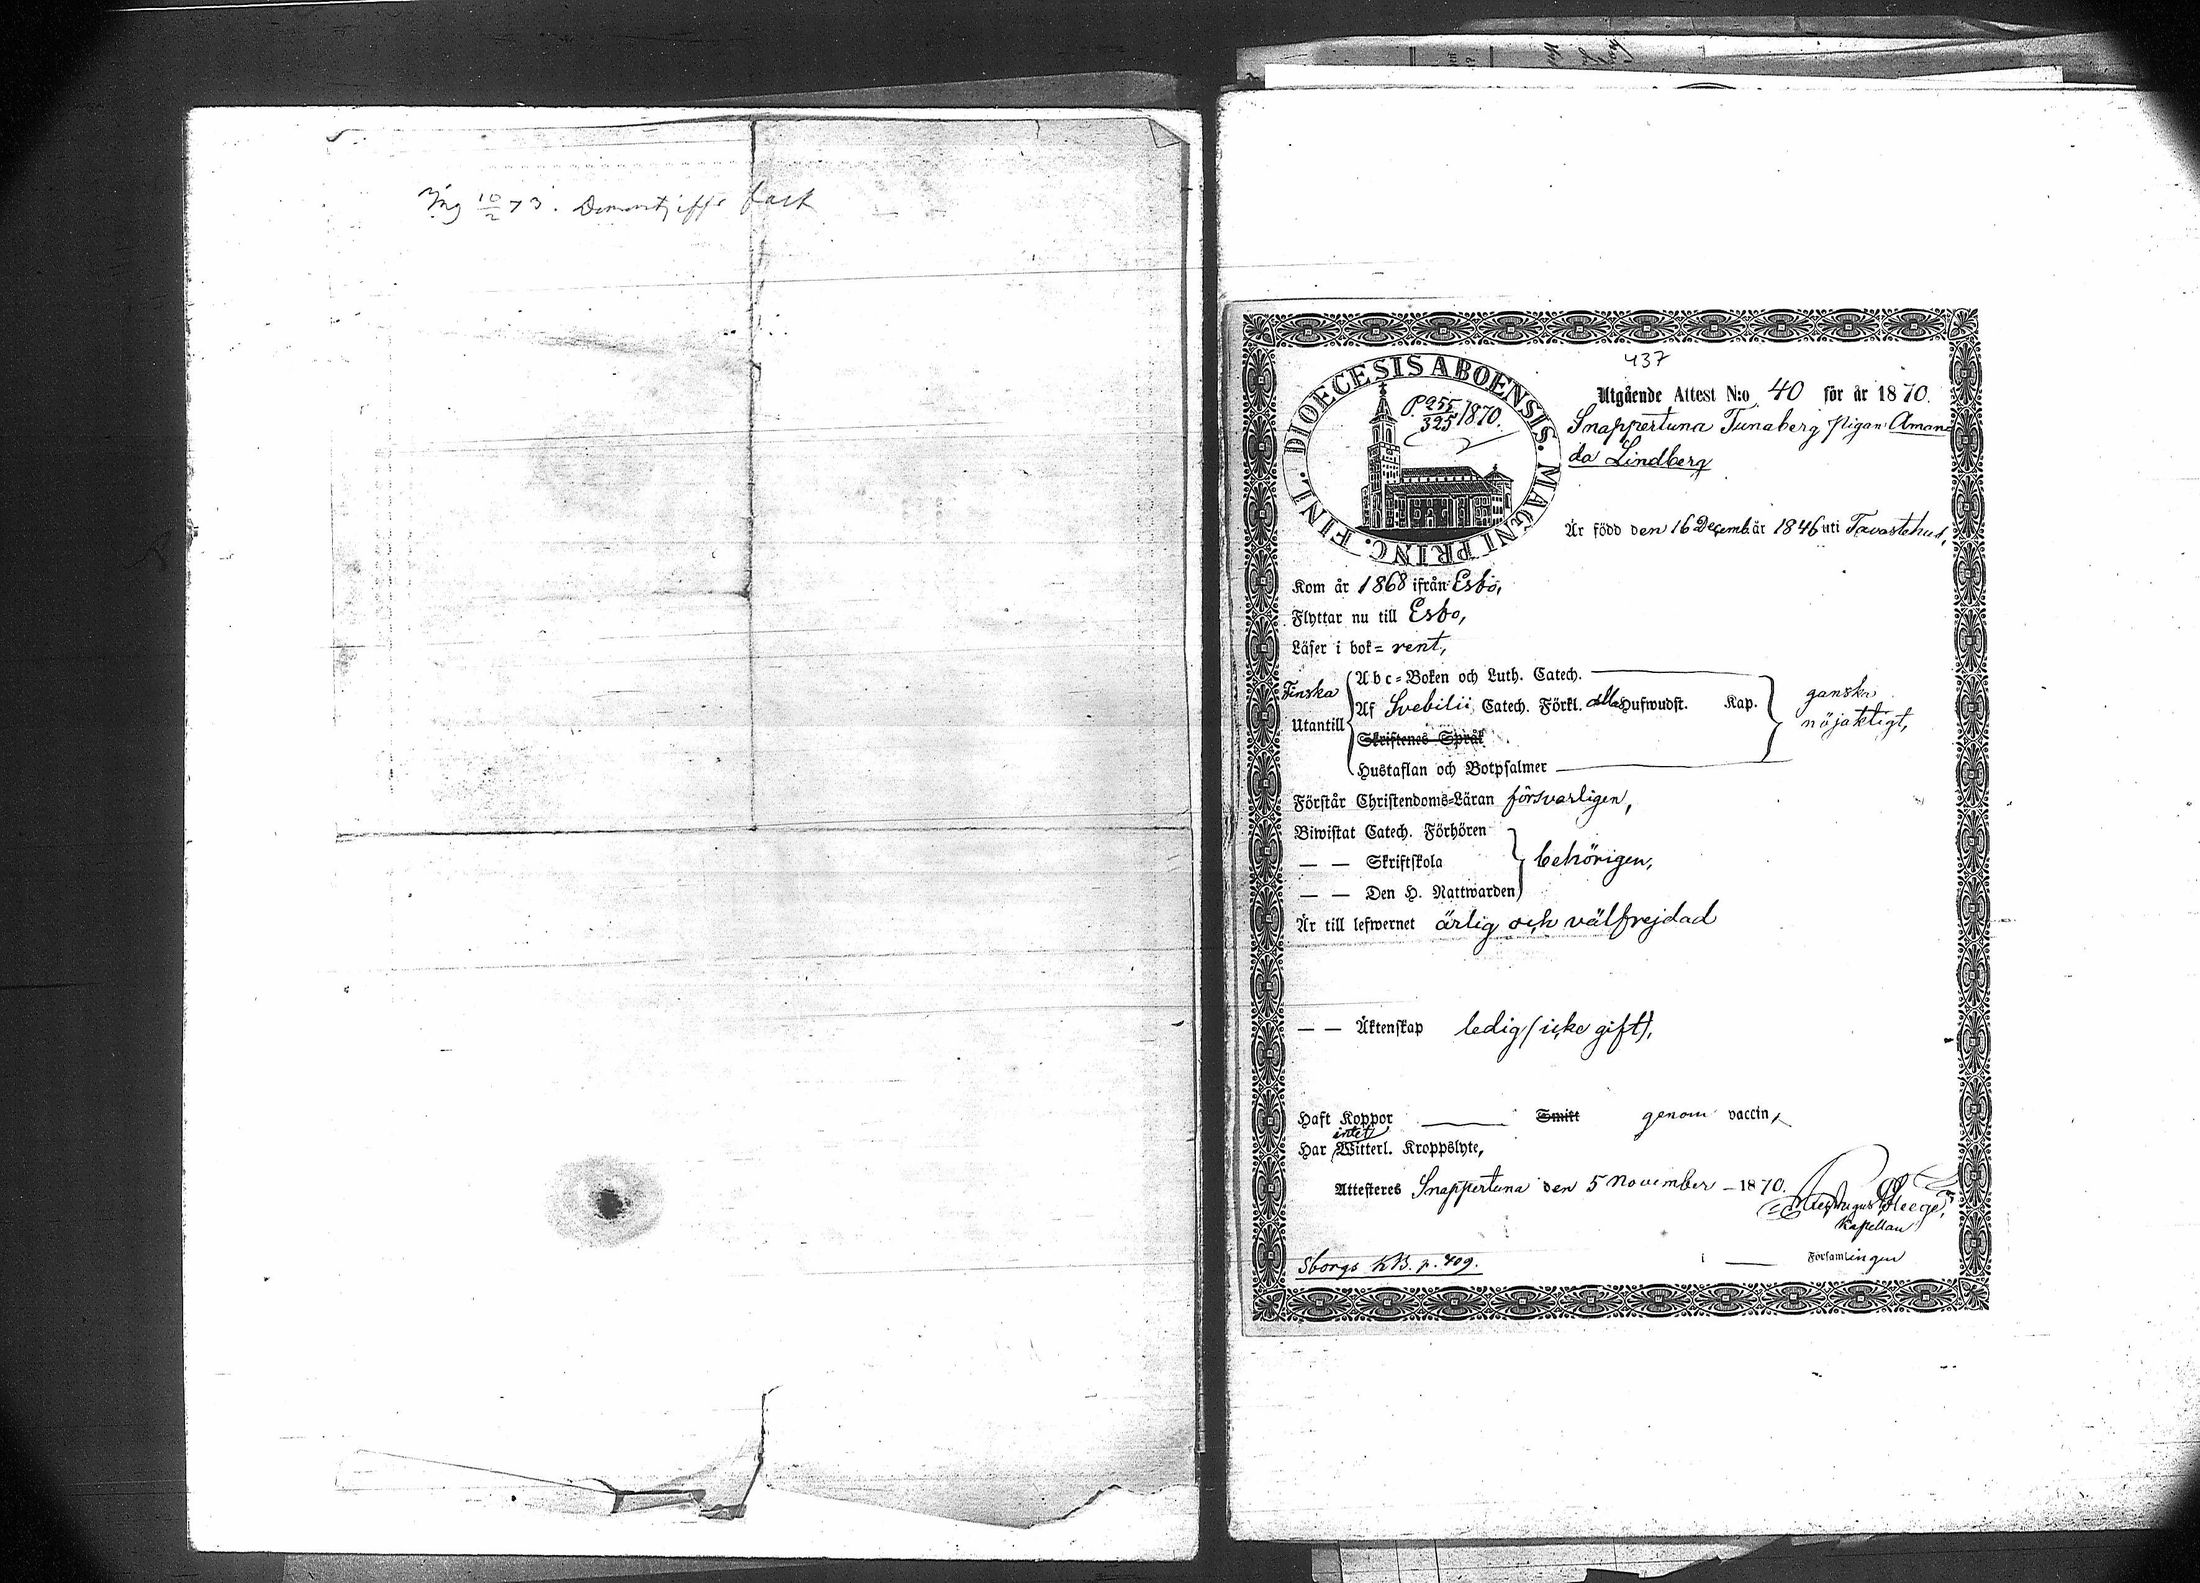 Ing 10/2 73.
437
DIOECESIS ABOENSIS. MAGNI PRINC. FINL.
P. 255/325 1870.
Utgående Attest N:o 40 för år 1870.
Snappertuna Tunaberg pigan Aman=
da Lindberg
Är född den 16 Decemb. år 1846 uti Tavastehus,
Kom år 1868 ifrån Esbo,
Flyttar nu till Esbo,
Läser i bok= rent,
Finska
Utantill
Abc=Boken och Luth. Catech.
Af Svebilii Catech. Förkl. alla Hufwudst. Kap.
Skriftenes Språk
Hustaflan och Botpsalmer
ganska
nöjaktigt,
Förstår Christendoms=Läran försvarligen,
Biwistat Catech. Förhören
— — Skriftskola
— — Den H. Nattwarden
behörigen,
Är till lefwernet ärlig och välfrejdad
— — Äktenskap ledig (icke gift),
Haft Koppor —— Smitt genom vaccin,
Har intet Witterl. Kroppslyte,
Attesteres Snappertuna den 5 November – 1870.
Kapellan
i —— Församlingen
Sborgs KB. p. 409.